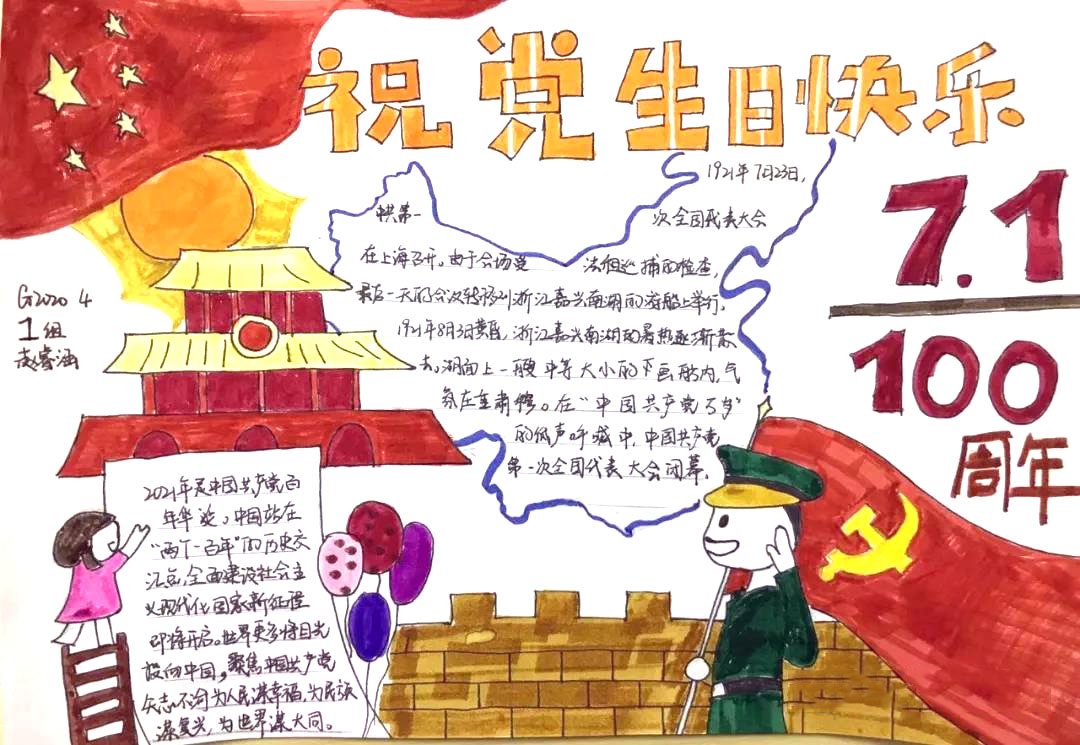 祝党生日快乐
7.1
100
周年
G2020 4
1组
赵睿涵
1921年7月23日,
中共第一 次全国代表大会
在上海召开。由于会场受 法租巡捕的检查,
最后一天的会议转移到浙江嘉兴南湖的游船上举行。
1921年8月3日黄昏,浙江嘉兴南湖的暑热逐渐散
去。湖面上一艘中等大小的 画舫内,气
氛庄重肃穆。在“中国共产党万岁”
的低声呼喊中,中国共产党
第一次全国代表大会闭幕。
2021年是中国共产党百
年华诞。中国站在
“两个一百年”的历史交
汇点,全面建设社会主
义现代化国家新征程
即将开启。世界更多将目光
投向中国,聚焦中国共产党
矢志不渝为人民谋幸福,为民族
谋复兴,为世界谋大同。